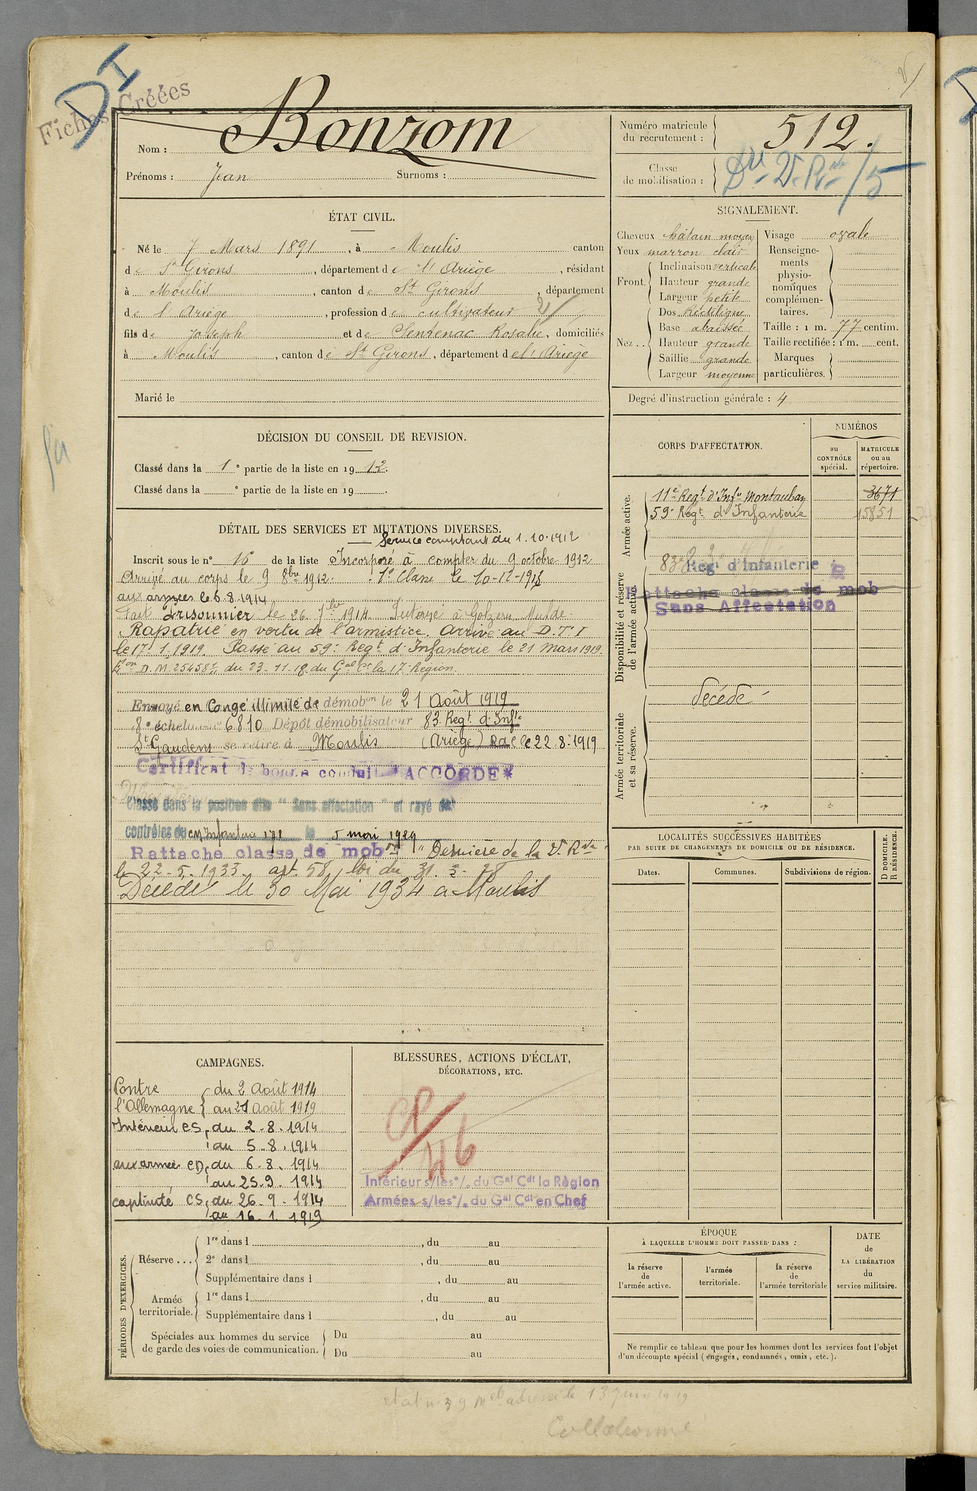 Fiches Créées
DI
Nom : Bonzom
Prénoms : Jean Surnoms :
Numéro matricule du recrutement : 512.
Classe de mobilisation :
ÉTAT CIVIL.
Né le 7 Mars 1891, à Moulis canton
de St Girons, département de l'Ariège, résidant
à Moulis, canton de St Girons, département
de l'Ariège, profession de cultivateur
fils de Joseph et de Sentenac Rosalie, domiciliés
à Moulis, canton de St Girons, département de l'Ariège
Marié le
SIGNALEMENT.
Cheveux châtain moyen
Yeux marron clair
Front. Inclinaison verticale
Hauteur grande
Largeur petite
Nez... Dos Rectiligne
Base abaissée
Hauteur grande
Saillie grande
Largeur moyenne
Visage ovale
Renseignements physionomiques complémentaires.
Taille : 1 m. 77 centim.
Taille rectifiée : 1 m. cent.
Marques particulières.
Degré d'instruction générale : 4
DÉCISION DU CONSEIL DE REVISION.
Classé dans la 1e partie de la liste en 1912.
Classé dans la e partie de la liste en 19 .
DÉTAIL DES SERVICES ET MUTATIONS DIVERSES.
Service comptant du 1.10.1912
Inscrit sous le n° 16 de la liste Incorporé à compter du 9 octobre 1912
Arrivé au corps le 9 8bre 1912. 1e Classe le 10-12-1913
aux armées le 6.8.1914
Fait Prisonnier le 26. 7bre 1914. Interné à Golzern Mulde.
Rapatrié en vertu de l'armistice. Arrivé au D.T.I
le 17.1.1919. Passé au 59e Regt d'Infanterie le 21 Mars 1919.
Don D.M. 25458 du 23.11.18 du Gal Ct la 17e Région.
Envoyé en Congé illimité de démobon le 21 Août 1919
8e échelon no 6810 Dépôt démobilisateur 83 Regt d'Infie
St Gaudens se retire à Moulis (Ariège) Rac le 22.8.1919
Certificat de bonne conduite ACCORDÉ*
Classé dans la position dite "Sans affectation" et rayé des
contrôles du le 5 mai 1929
Rattaché classe de mobon "Dernière de la 2e Rve"
le 22-5-1933 art 58, loi du 31-3-28
Décédé le 30 Mai 1934 à Moulis
CORPS D'AFFECTATION.
NUMÉROS
au CONTRÔLE spécial.
MATRICULE ou au répertoire.
Armée active.
11e Regt d'Infie Montauban 3671
59e Regt d'Infanterie 15851
Disponibilité et réserve de l'armée active.
83e Reg' d'Infanterie
Rattaché classe de mob
Sans Affectation
Armée territoriale et sa réserve.
décédé
LOCALITÉS SUCCESSIVES HABITÉES
PAR SUITE DE CHANGEMENTS DE DOMICILE OU DE RÉSIDENCE.
Dates. Communes. Subdivisions de région.
D DOMICILE. R RÉSIDENCE.
CAMPAGNES.
Contre l'Allemagne du 2 Août 1914
au 21 Août 1919
Intérieur CS, du 2-8-1914
au 5-8-1914
aux armées CD, du 6.8.1914
au 25.9.1914
captivité CS, du 26-9-1914
au 16.1.1919
BLESSURES, ACTIONS D'ÉCLAT,
DÉCORATIONS, ETC.
Intérieur s/les°/. du Gal Cdt la Région
Armées s/les°/. du Gal Cdt en Chef
PÉRIODES D'EXERCICES.
Réserve...
1re dans l , du au
2e dans l , du au
Supplémentaire dans l , du au
Armée territoriale.
1re dans l , du au
Supplémentaire dans l , du au
Spéciales aux hommes du service de garde des voies de communication.
Du au
Du au
ÉPOQUE
À LAQUELLE L'HOMME DOIT PASSER DANS :
la réserve de l'armée active.
l'armée territoriale.
la réserve de l'armée territoriale
DATE de LA LIBÉRATION du service militaire.
Ne remplir ce tableau que pour les hommes dont les services font l'objet
d'un décompte spécial (engagés, condamnés, omis, etc.).
Collationné